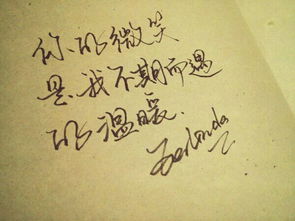 你的微笑
是我不期而遇
的温暖.
Belinda